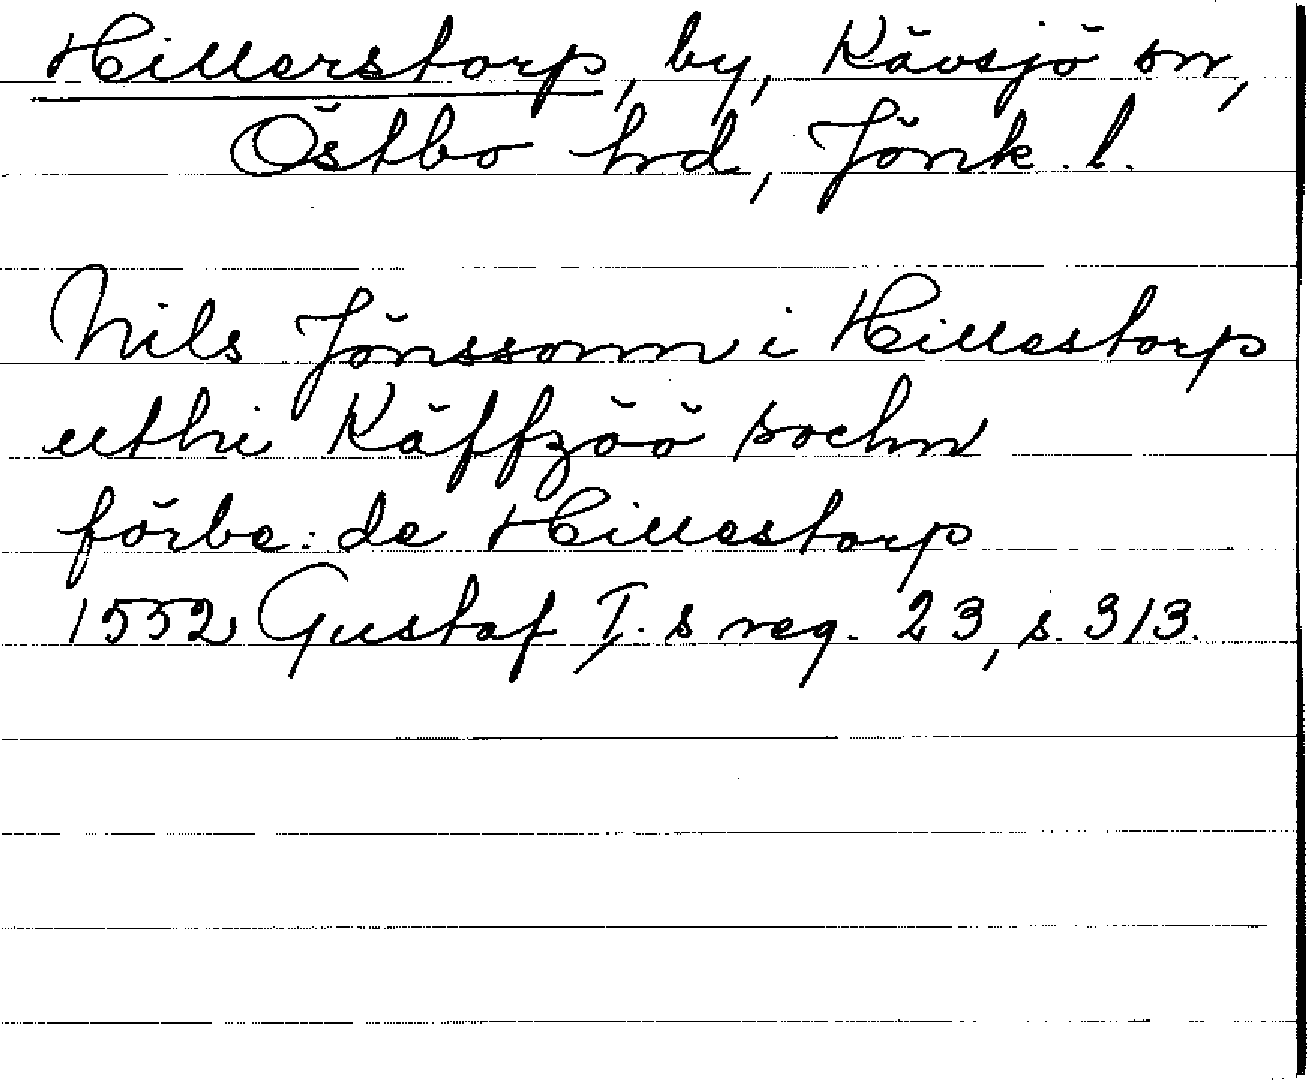 Hillerstorp, by, Kävsjö sn,
Östbo hrd, Jönk. l.
Nils Jönssonn i Hillestorp
utthi Käffzöö sochn
förbe: de Hillestorp
1552 Gustaf I. s reg. 23, s. 313.